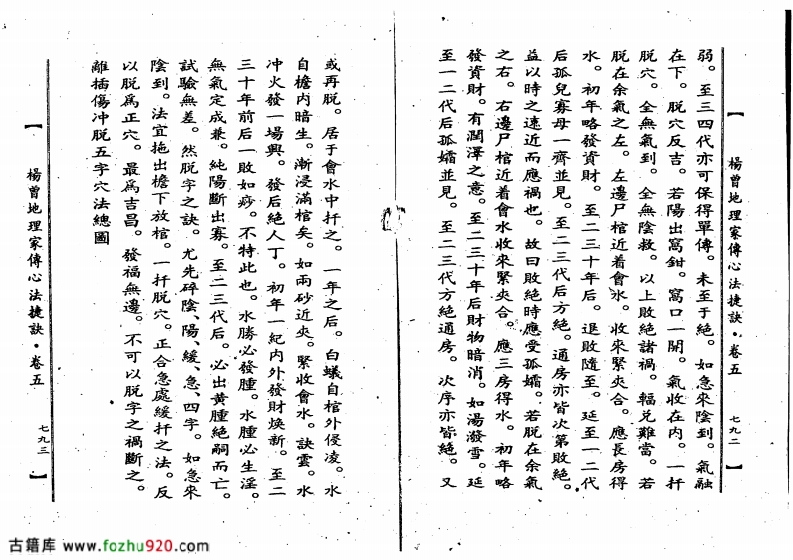 楊曾地理家傳心法捷訣·卷五 七九二
弱。至三四代亦可保得單傳。未至于絕。如急來陰到。氣融
在下。脫穴反吉。若陽出窩鉗。窩口一開。氣收在內。一扦
脫穴。全無氣到。全無陰救。以上敗絕諸禍。輻兑難當。若
脫在余氣之左。左邊尸棺近着會水。收來緊夾合。應長房得
水。初年略發資財。至二三十年后。退敗隨至。延至一二代
后孤兒寡母一齊並見。至二三代后方絕。通房亦皆次第敗絕。
益以時之遠近而應禍也。故曰敗絕時應受孤孀。若脫在余氣
之右。右邊尸棺近着會水收來緊夾合。應三房得水。初年略
發資財。有潤澤之意。至二三十年后財物暗消。如湯潑雪。延
至一二代后孤孀並見。至二三代方絕通房。次序亦皆絕。又
或再脫。居于會水中扦之。一年之后。白蟻自棺外侵凌。水
自棺內暗生。漸浸滿棺矣。如兩砂近夾。緊收會水。訣雲。水
冲火發一場興。發后絕人丁。初年一紀內外發財煥新。至二
三十年前后一敗如痧。不特此也。水勝必發腫。水腫必生淫。
無氣定成兼。純陽斷出寡。至二三代后。必出黃腫絕嗣而亡。
試驗無差。然脫字之訣。尤先碎陰、陽、緩、急、四字。如急來
陰到。法宜拖出檐下放棺。一扦脫穴。正合急處緩扦之法。反
以脫爲正穴。最爲吉昌。發福無邊。不可以脫字之禍斷之。
離插傷冲脫五字穴法總圖
楊曾地理家傳心法捷訣·卷五 七九三
古籍库 www.fozhu920.com